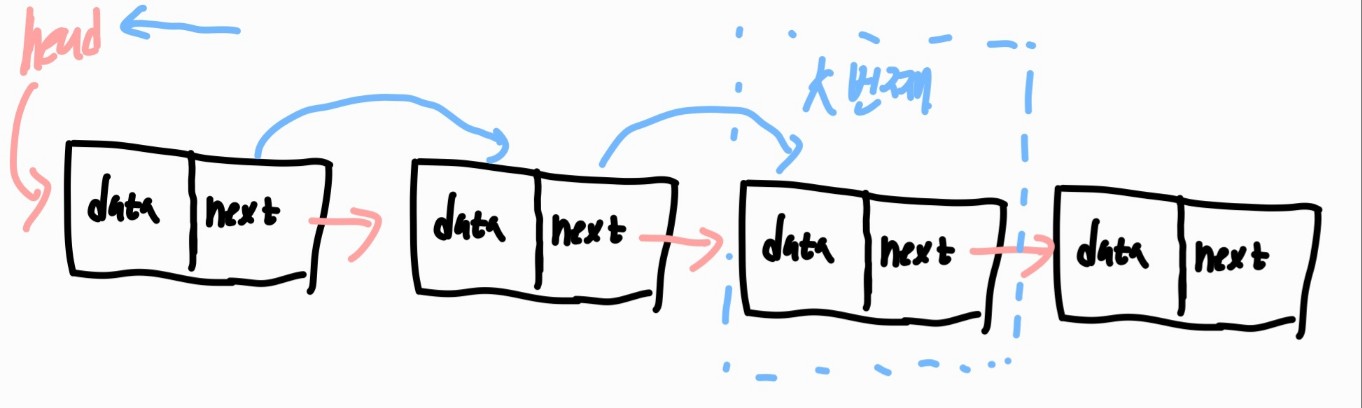 head
k 번째
data next data next data next data next